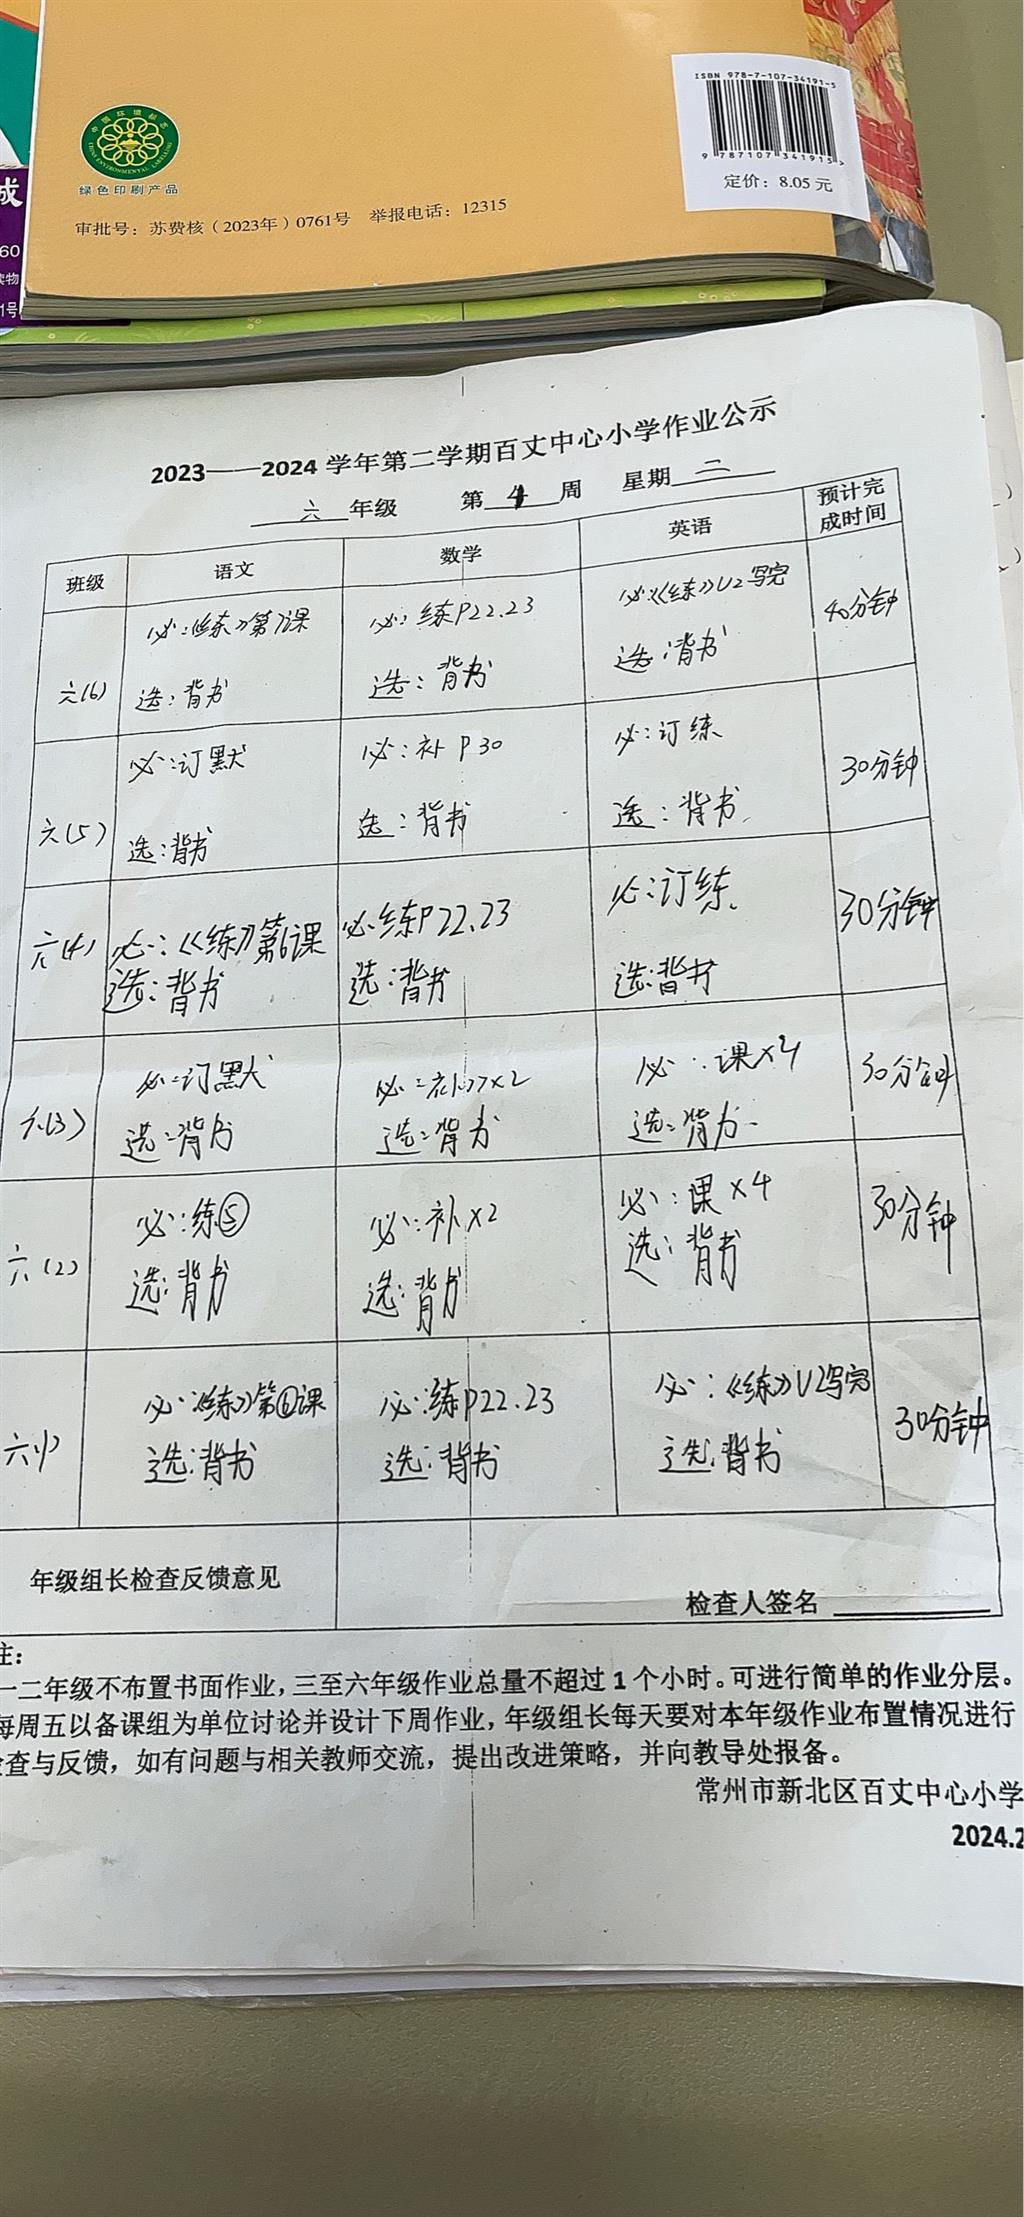 ISBN 978-7-107-34191-5
9 787107 341915 >
定价：8.05 元
中国环境标志
CHINA ENVIRONMENTAL LABELLING
绿色印刷产品
审批号：苏费核（2023年）0761号 举报电话：12315
成
60
读物
1号
2023——2024 学年第二学期百丈中心小学作业公示
六 年级 第 4 周 星期 二
班级 语文 数学 英语 预计完成时间
六(6)
必：《练》第7课
选：背书
必：练P22.23
选：背书
必：《练》U2写完
选：背书
40分钟
六(5)
必：订默
选：背书
必：补P30
选：背书
必：订练
选：背书.
30分钟
六(4)
必：《练》第6课
选：背书
必：练P22.23
选：背书
必：订练.
选：背书
30分钟
六(3)
必：订默
选：背书
必：
选：背书
必：课×4
选：背书.
30分钟
六(2)
必：练⑤
选：背书
必：补×2
选：背书
必：课×4
选：背书
30分钟
六(1)
必：《练》第⑥课
选：背书
必：练P22.23
选：背书
必：《练》U2写完
选：背书
30分钟
年级组长检查反馈意见
检查人签名
注：
一二年级不布置书面作业，三至六年级作业总量不超过 1 个小时。可进行简单的作业分层。
每周五以备课组为单位讨论并设计下周作业，年级组长每天要对本年级作业布置情况进行
检查与反馈，如有问题与相关教师交流，提出改进策略，并向教导处报备。
常州市新北区百丈中心小学
2024.2